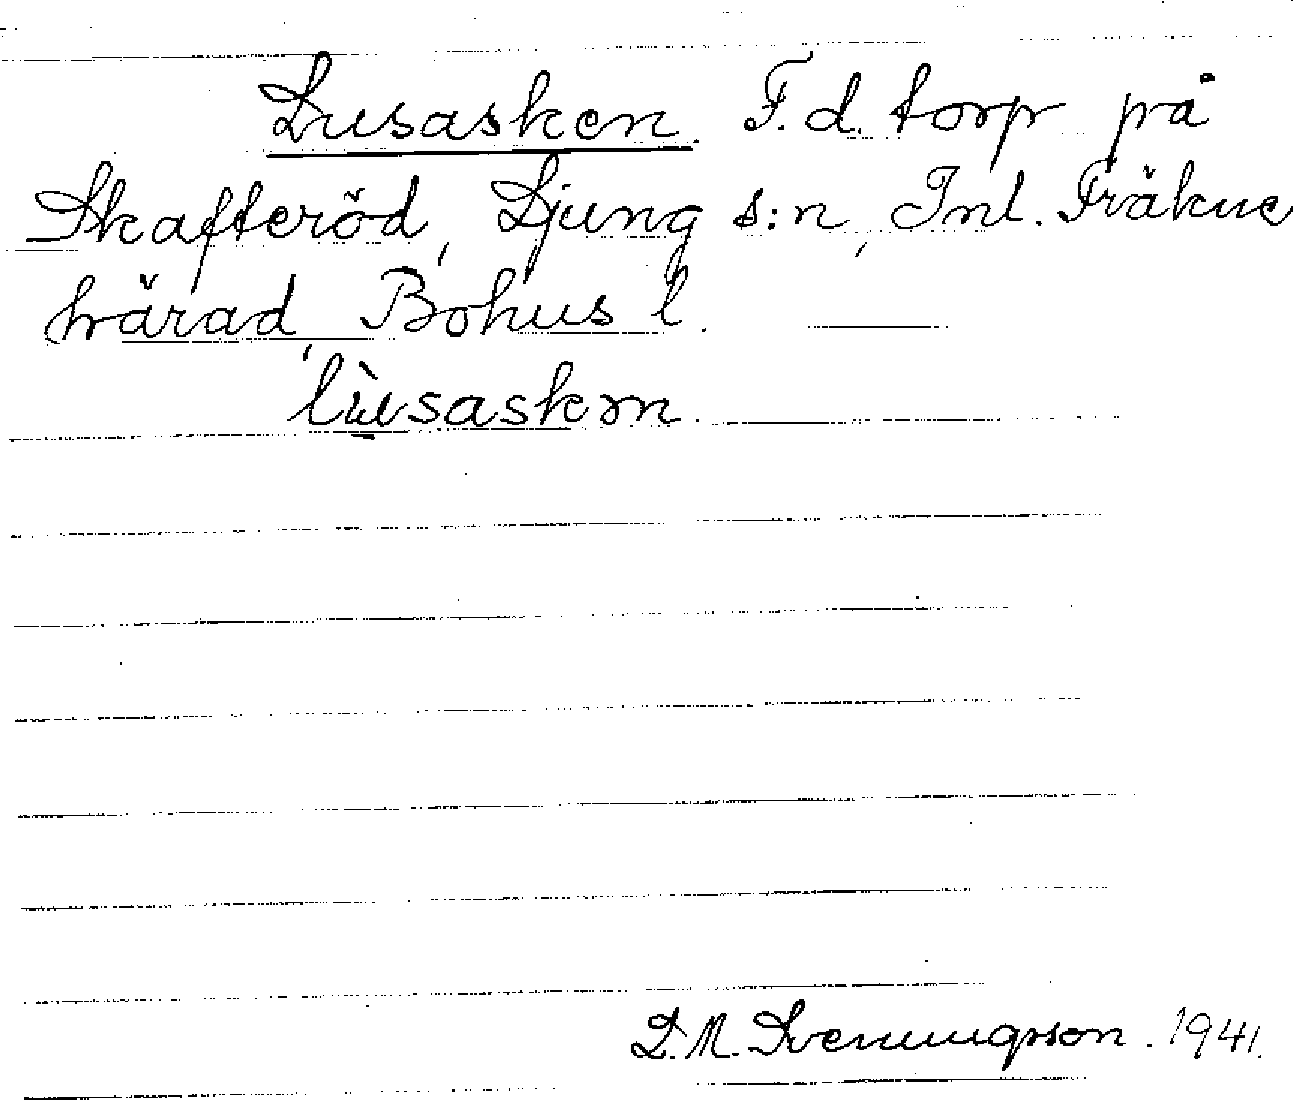 Lusasken. F.d. torp på
Skafteröd, Ljung s:n, Inl. Fräkne
härad, Bohus l.
lùsaskən.
L.M. Svenungsson. 1941.